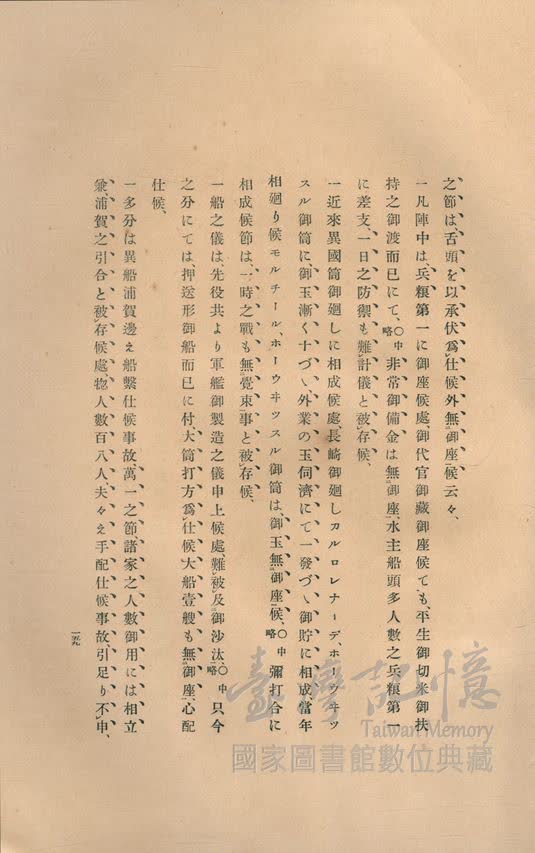 之節は、舌頭を以承伏爲仕候外無御座候云々、
一凡陣中は、兵粮第一に御座候處、御代官御藏御座候ても、平生御切米御扶
持之御渡而已にて、〇中略非常御備金は無御座、水主船頭多人數之兵粮第一
に差支、一日之防禦も難計儀と被存候、
一近來異國筒御廻しに相成候處、長崎御廻しカルロレナーデ、ホーウヰツ
スル御筒に、御玉漸く十づゝ外業の玉伺濟にて一發づゝ御貯に相成、當年
相廻り候モルチール、ホーウヰツスル御筒は、御玉無御座候、〇中略彌打合に
相成候節は、一時之戰も無覺束事と被存候、
一船之儀は、先役共より軍艦御製造之儀申上候處、難被及御沙汰、〇中略只今
之分にては、押送形御船而已に付、大筒打方爲仕候大船壹艘も無御座、心配
仕候、
一多分は異船浦賀邊え船繫仕候事故、萬一之節諸家之人數御用には相立
兼、浦賀之引合と被存候處、惣人數百八人、夫々え手配仕候事故、引足り不申、
一五九
臺灣記憶
Taiwan Memory
國家圖書館數位典藏